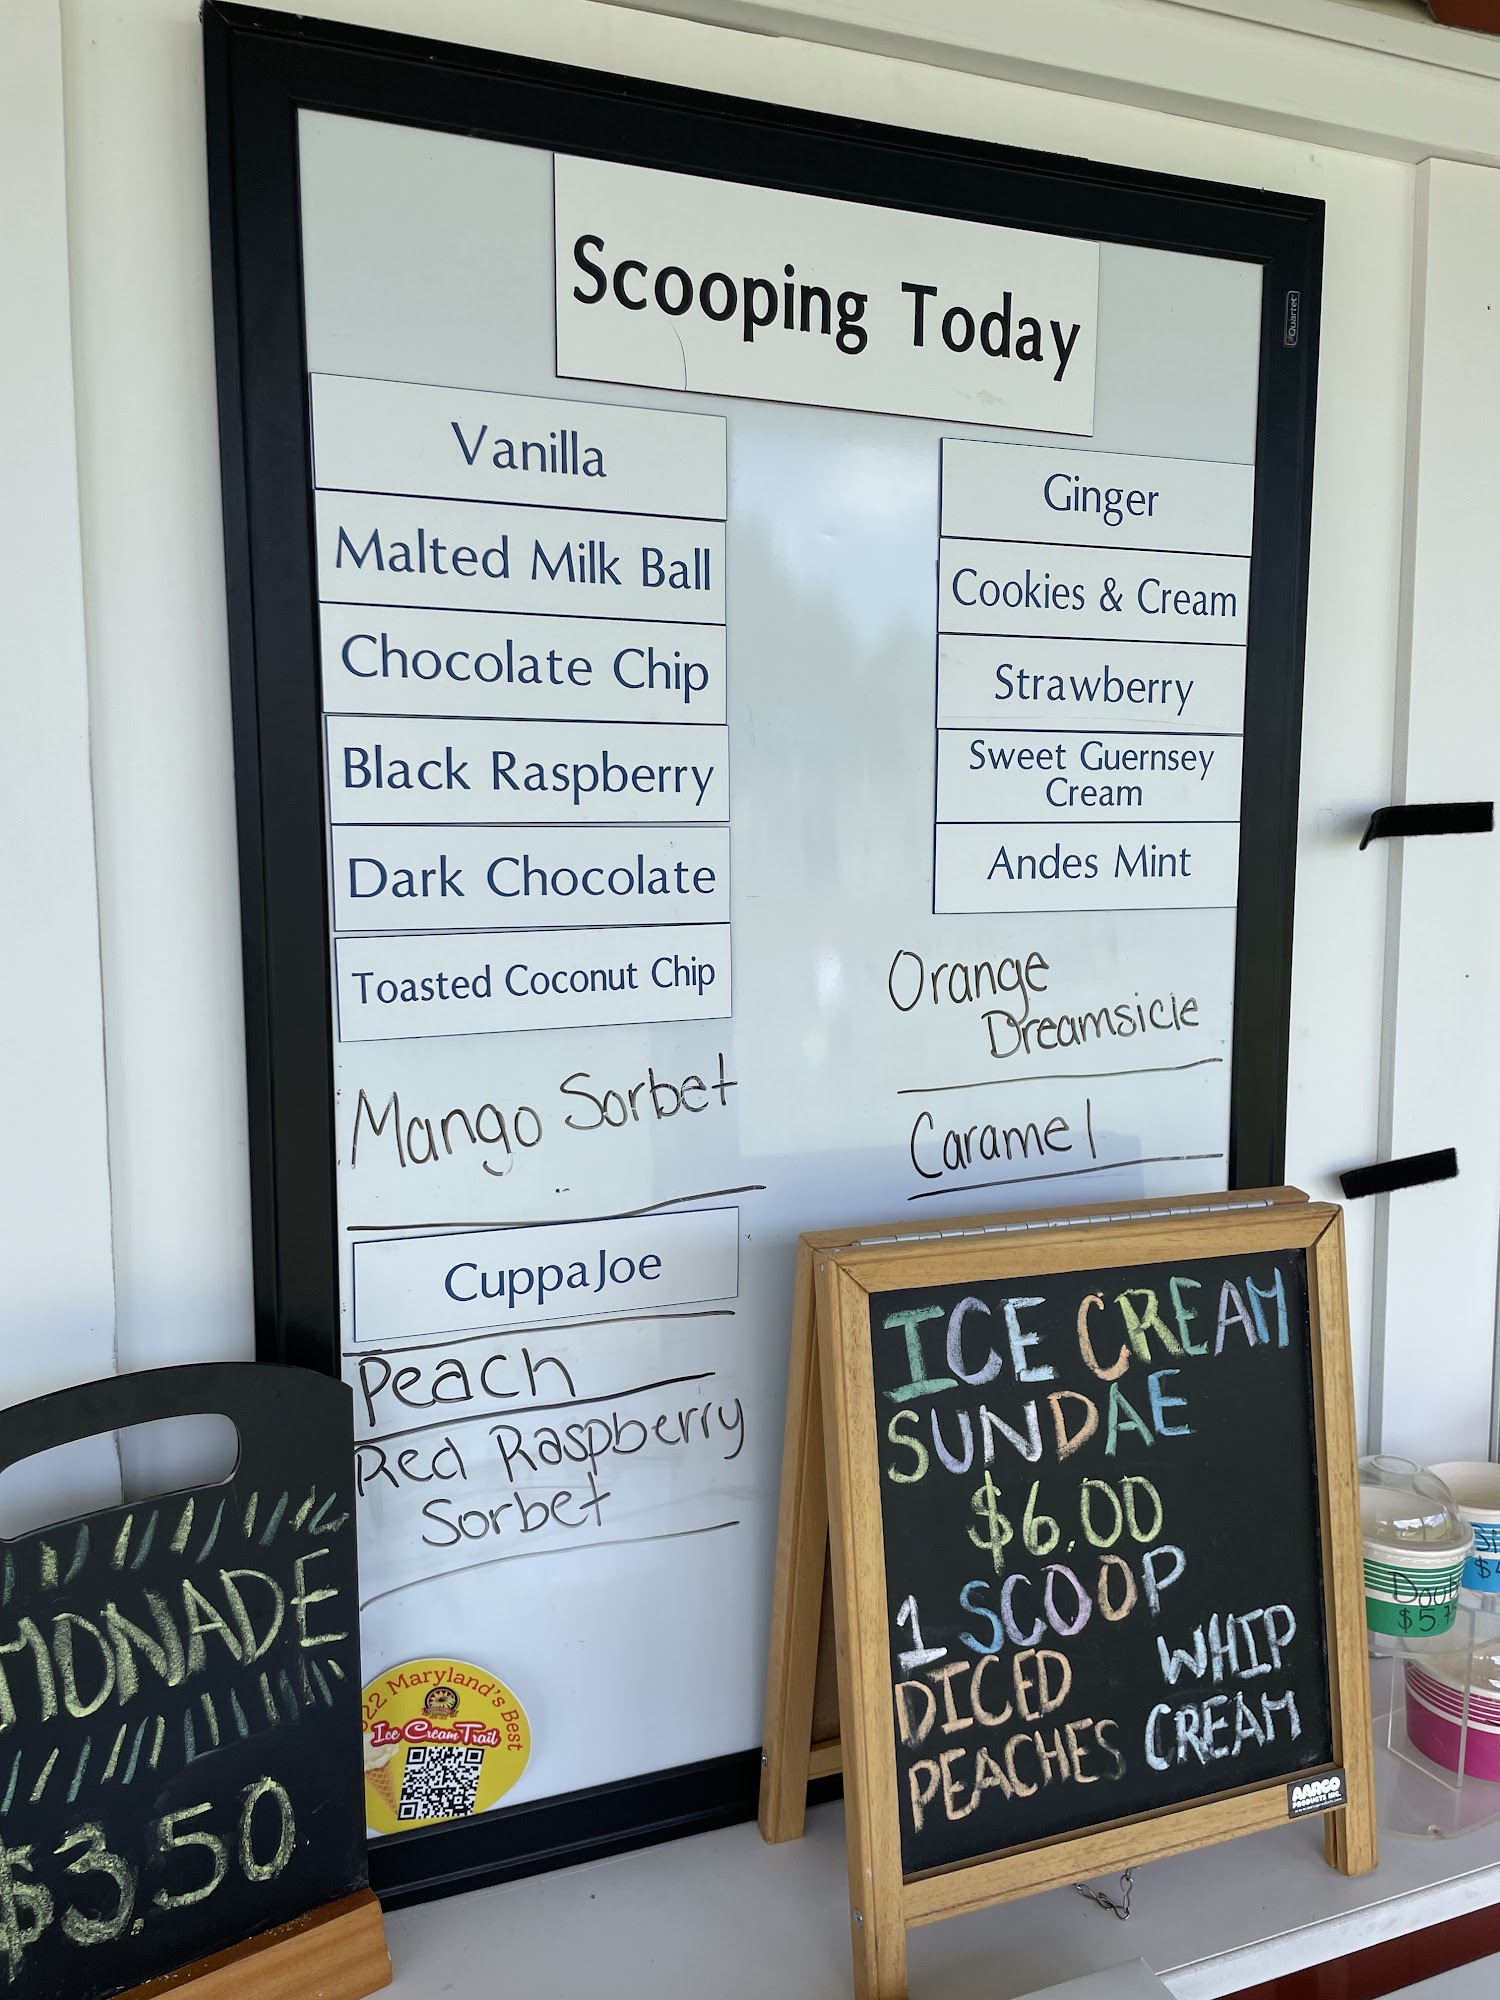 Scooping Today
Quartet
Vanilla
Malted Milk Ball
Chocolate Chip
Black Raspberry
Dark Chocolate
Toasted Coconut Chip
Mango Sorbet
CuppaJoe
Peach
Red Raspberry
Sorbet
Ginger
Cookies & Cream
Strawberry
Sweet Guernsey
Cream
Andes Mint
Orange
Dreamsicle
Caramel
ICE CREAM
SUNDAE
$6.00
1 SCOOP
DICED WHIP
PEACHES CREAM
AARCO
PRODUCTS INC.
MONADE
$3.50
22 Maryland's Best
Ice Cream Trail
$5.
$4